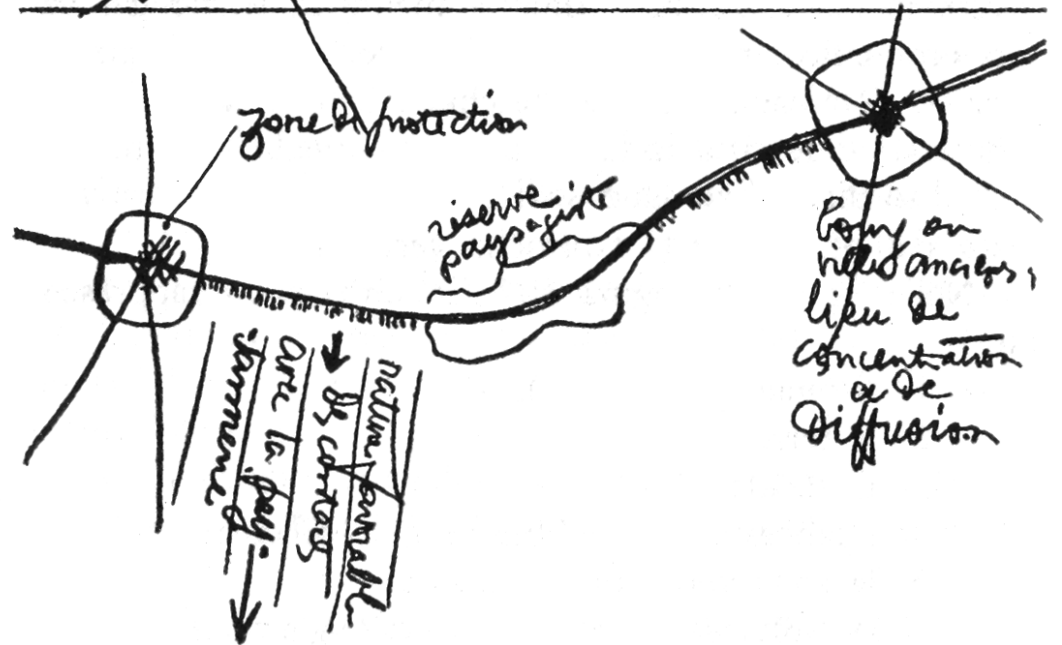 zone de protection
réserve
paysagiste
bourg ou
villes anciens,
lieu de
concentration
& de
Diffusion
nature
des contacts
avec la pay-
sannerie